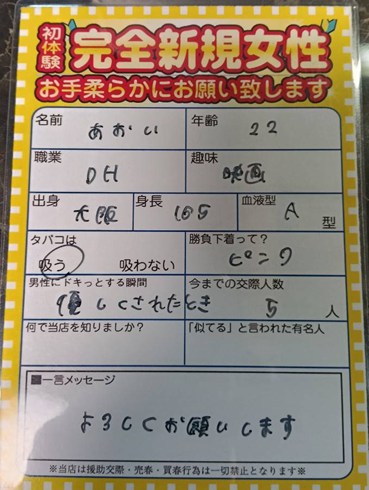 初体験 完全新規女性
お手柔らかにお願い致します
名前 あおい 年齢 22
職業 DH 趣味 映画
出身 大阪 身長 165 血液型 A 型
タバコは 勝負下着って?
吸う 吸わない ピンク
男性にドキっとする瞬間 今までの交際人数
優しくされたとき 5 人
何で当店を知りましか? 「似てる」と言われた有名人
■一言メッセージ
よろしくお願いします
※当店は援助交際・売春・買春行為は一切禁止となります※